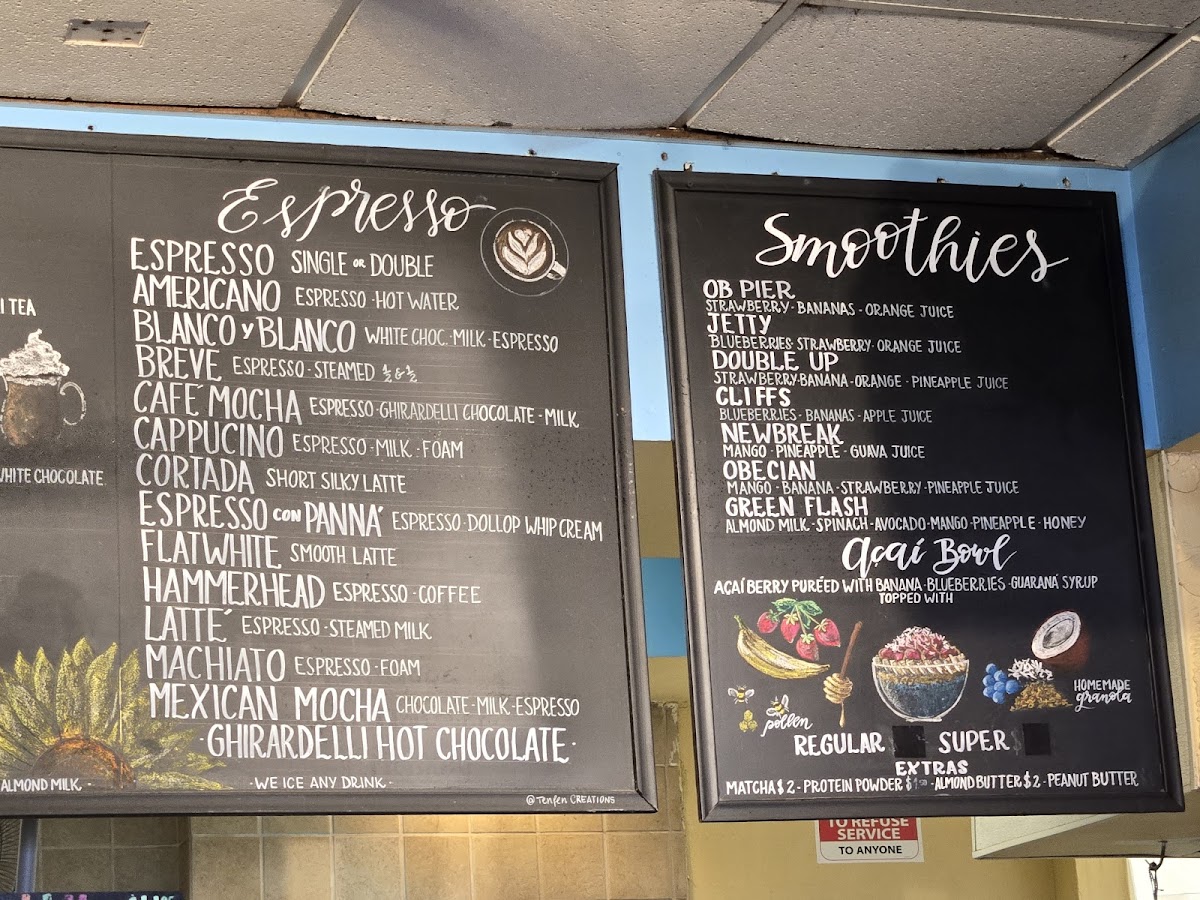 I TEA
WHITE CHOCOLATE
ALMOND MILK -
Espresso
ESPRESSO SINGLE OR DOUBLE
AMERICANO ESPRESSO - HOT WATER
BLANCO Y BLANCO WHITE CHOC. - MILK - ESPRESSO
BREVE ESPRESSO - STEAMED ½ & ½
CAFÉ MOCHA ESPRESSO - GHIRARDELLI CHOCOLATE - MILK
CAPPUCINO ESPRESSO - MILK - FOAM
CORTADA SHORT SILKY LATTE
ESPRESSO CON PANNÁ ESPRESSO - DOLLOP WHIP CREAM
FLATWHITE SMOOTH LATTE
HAMMERHEAD ESPRESSO - COFFEE
LATTÉ ESPRESSO - STEAMED MILK
MACHIATO ESPRESSO - FOAM
MEXICAN MOCHA CHOCOLATE - MILK - ESPRESSO
- GHIRARDELLI HOT CHOCOLATE -
- WE ICE ANY DRINK -
@ TENFEN CREATIONS
Smoothies
OB PIER
STRAWBERRY - BANANAS - ORANGE JUICE
JETTY
BLUEBERRIES - STRAWBERRY - ORANGE JUICE
DOUBLE UP
STRAWBERRY - BANANA - ORANGE - PINEAPPLE JUICE
CLIFFS
BLUEBERRIES - BANANAS - APPLE JUICE
NEWBREAK
MANGO - PINEAPPLE - GUAVA JUICE
OBECIAN
MANGO - BANANA - STRAWBERRY - PINEAPPLE JUICE
GREEN FLASH
ALMOND MILK - SPINACH - AVOCADO - MANGO - PINEAPPLE - HONEY
Açaí Bowl
AÇAÍ BERRY PURÉED WITH BANANA - BLUEBERRIES - GUARANÁ SYRUP
TOPPED WITH
pollen
HOMEMADE
granola
REGULAR SUPER
EXTRAS
MATCHA $2 - PROTEIN POWDER - ALMOND BUTTER $2 - PEANUT BUTTER
TO REFUSE
SERVICE
TO ANYONE